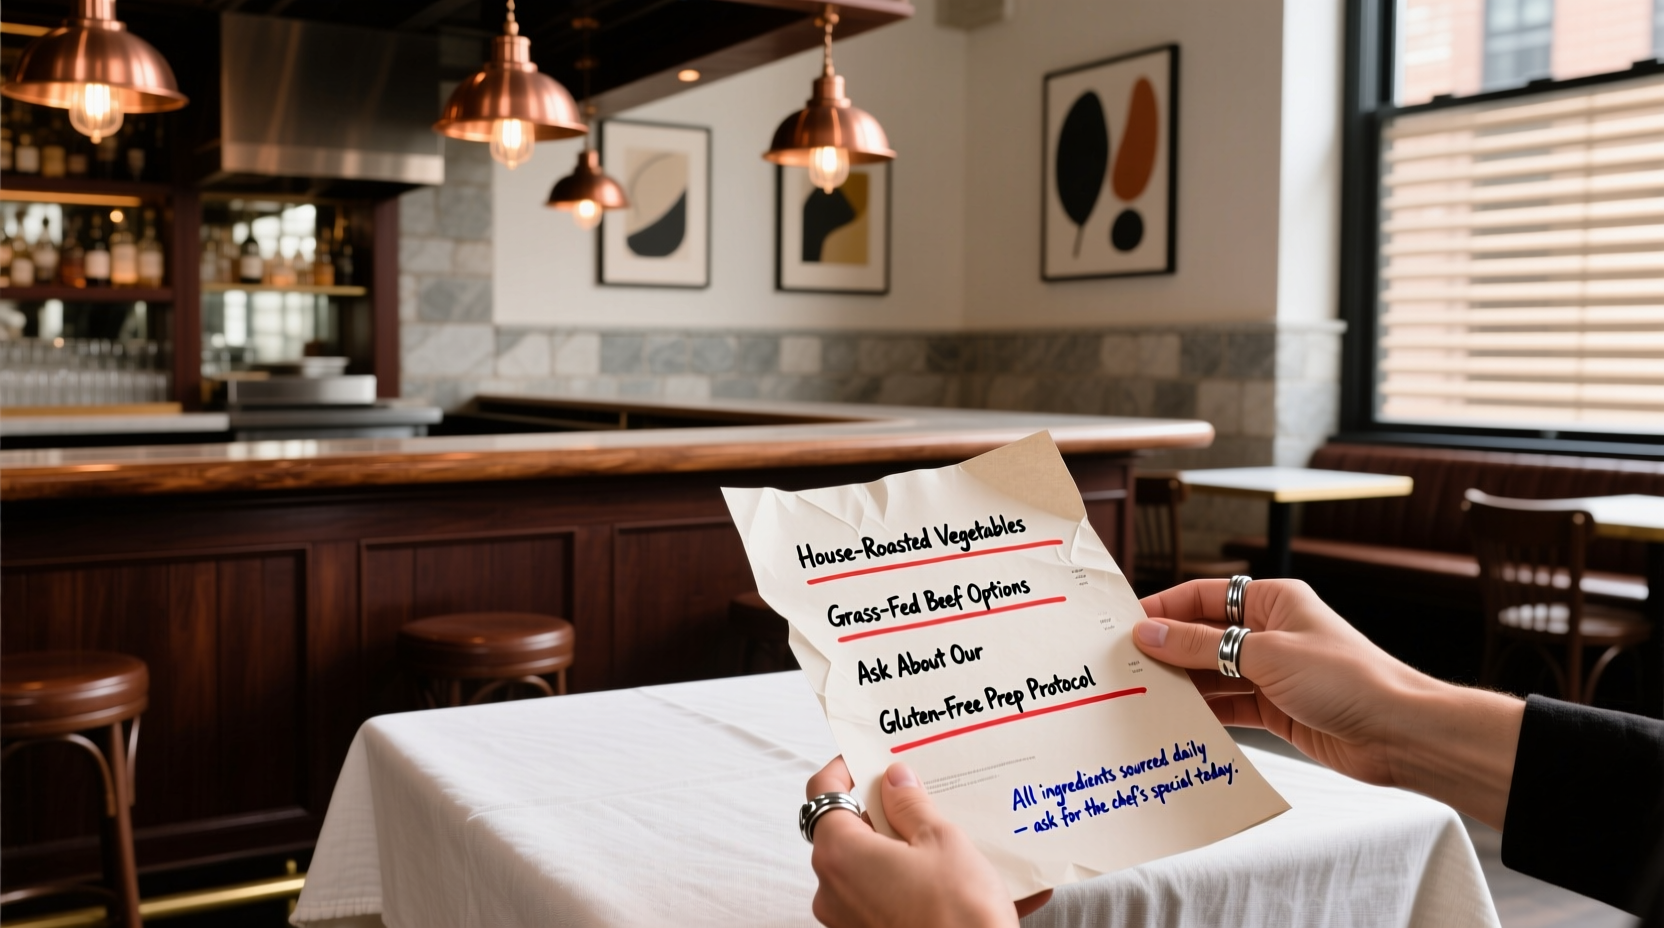 House-Roasted Vegetables
Grass-Fed Beef Options
Ask About Our
Gluten-Free Prep Protocol
All ingredients sourced daily
— ask for the chef's special today.